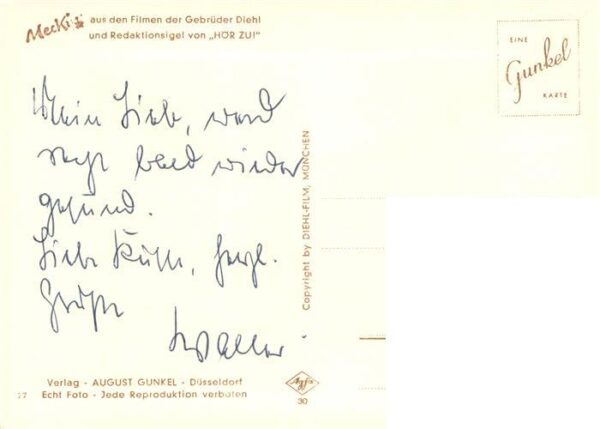 Mecki aus den Filmen der Gebrüder Diehl
und Redaktionsigel von „HÖR ZU!"
EINE
Gunkel
KARTE
Mein Lieb, werd
recht bald wieder
gesund.
Liebe Küsse, herzl.
Grüße
Copyright by DIEHL-FILM, MÜNCHEN
Verlag - AUGUST GUNKEL - Düsseldorf
Echt Foto - Jede Reproduktion verboten
Agfa
30